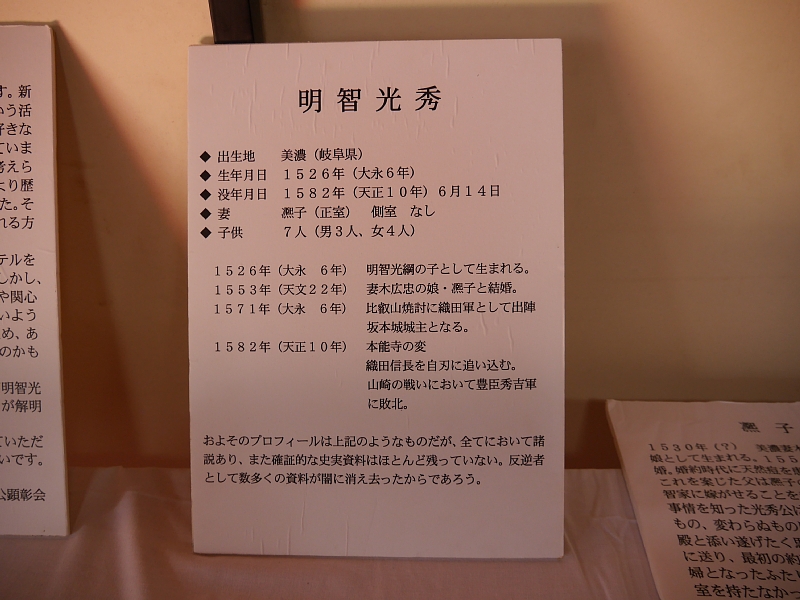 明智光秀
◆ 出生地 美濃（岐阜県）
◆ 生年月日 １５２６年（大永６年）
◆ 没年月日 １５８２年（天正１０年）６月１４日
◆ 妻 凞子（正室） 側室 なし
◆ 子供 ７人（男３人、女４人）
１５２６年（大永 ６年） 明智光綱の子として生まれる。
１５５３年（天文２２年） 妻木広忠の娘・凞子と結婚。
１５７１年（大永 ６年） 比叡山焼討に織田軍として出陣
坂本城城主となる。
１５８２年（天正１０年） 本能寺の変
織田信長を自刃に追い込む。
山崎の戦いにおいて豊臣秀吉軍
に敗北。
およそのプロフィールは上記のようなものだが、全てにおいて諸
説あり、また確証的な史実資料はほとんど残っていない。反逆者
として数多くの資料が闇に消え去ったからであろう。
す。新
いう活
好きな
ていま
考えら
より歴
た。そ
れる方
テルを
しかし、
や関心
いよう
め、あ
のかも
明智光
が解明
ていただ
いです。
公顕彰会
凞子
１５３０年（？） 美濃妻木
娘として生まれる。１５５
婚。婚約時代に天然痘を患
これを案じた父は凞子の
智家に嫁がせることを
事情を知った光秀公は
もの、変わらぬもの
殿と添い遂げたく
に送り、最初の約
婦となったふたり
室を持たなかっ